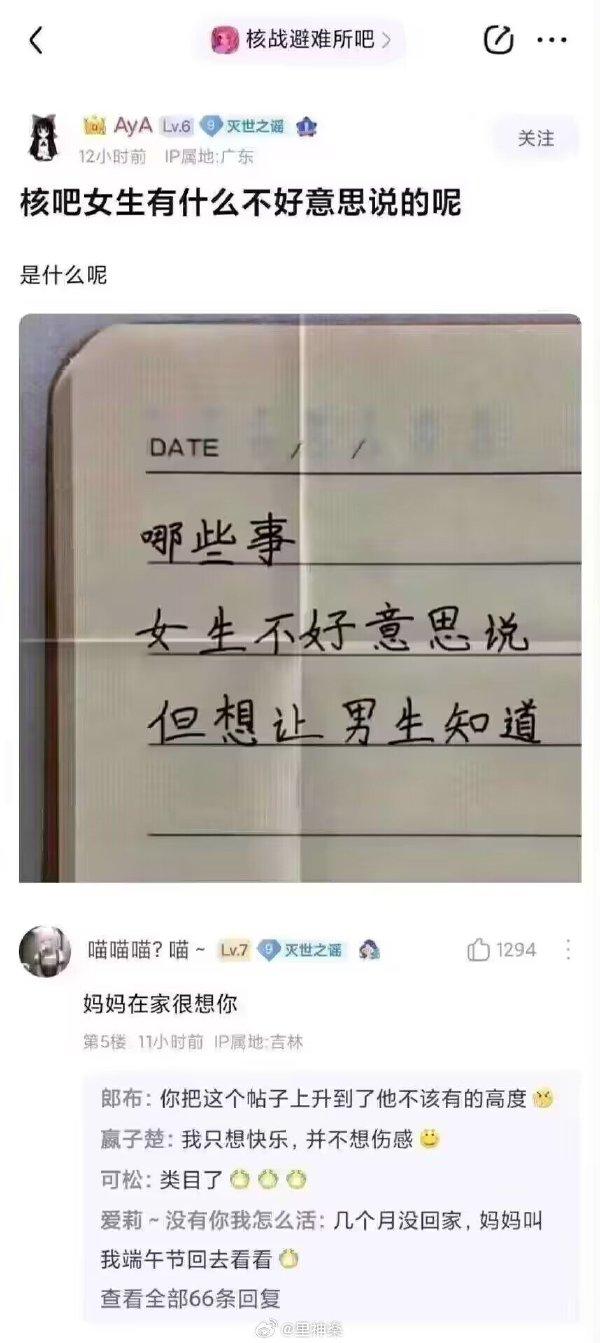 核战避难所吧
AyA Lv.6 9 灭世之谣
12小时前 IP属地:广东
关注
核吧女生有什么不好意思说的呢
是什么呢
DATE / /
哪些事
女生不好意思说
但想让男生知道
喵喵喵?喵~ Lv.7 9 灭世之谣
1294
妈妈在家很想你
第5楼 11小时前 IP属地:吉林
郎布: 你把这个帖子上升到了他不该有的高度
嬴子楚: 我只想快乐, 并不想伤感
可松: 类目了
爱莉~没有你我怎么活: 几个月没回家, 妈妈叫
我端午节回去看看
查看全部66条回复
@里神桑